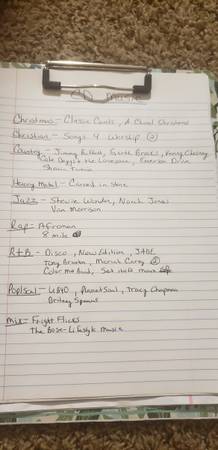 CD Music
Christmas - Classic Carols, A Choral Christmas
Christian - Songs 4 Worship (2)
Country - Jimmy Elliott, Garth Brooks, Kenny Chesney
Cole Deggs & the Lonesome, Emerson Drive
Shania Twain
Heavy Metal - Carved in Stone
Jazz - Stewie Wonder, Norah Jones
Van Morrison
Rap - Afroman
8 mile
R+B - Disco, New Edition, JADE
Toni Braxton, Mariah Carey (2)
Color Me Badd, Set it off
Pop/Soul - UB40, Planet Soul, Tracy Chapman
Britney Spears
Mix - Fright Flicks
The Bose - Lifestyle Music